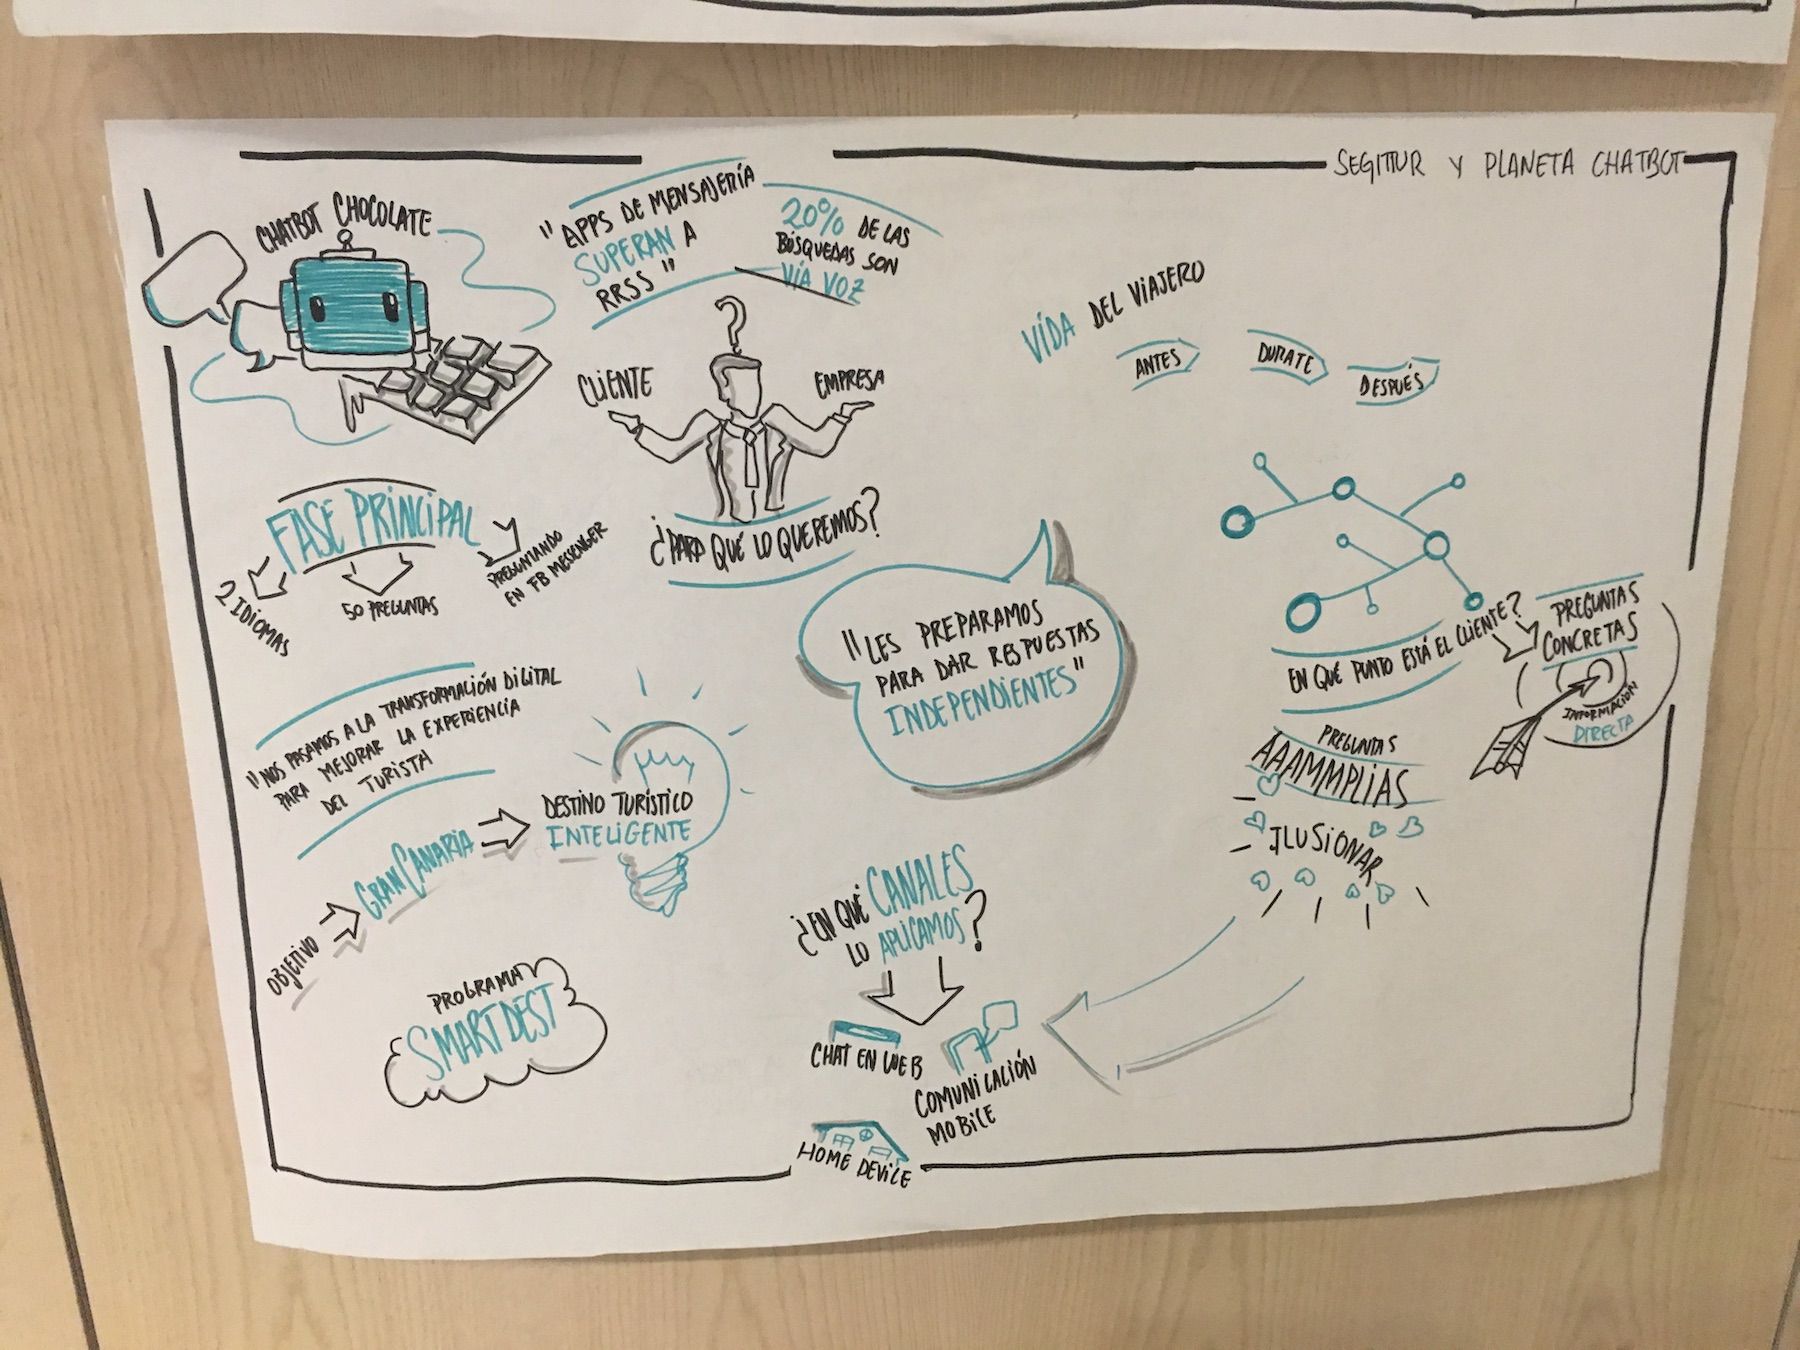 SEGITTUR Y PLANETA CHATBOT
CHATBOT CHOCOLATE
"APPS DE MENSAJERÍA
SUPERAN A
RRSS"
20% DE LAS
BÚSQUEDAS SON
VÍA VOZ
CLIENTE
?
EMPRESA
¿PARA QUÉ LO QUEREMOS?
VÍDA DEL VIAJERO
ANTES
DURATE
DESPUÉS
FASE PRINCIPAL
2 IDIOMAS
50 PREGUNTAS
PREGUNTANDO
EN FB MESSENGER
"LES PREPARAMOS
PARA DAR RESPUESTAS
INDEPENDIENTES"
EN QUÉ PUNTO ESTÁ EL CLIENTE?
PREGUNTAS
CONCRETAS
INFORMACIÓN
DIRECTA
PREGUNTAS
AAAMMPLIAS
ILUSIONAR
"NOS PASAMOS A LA TRANSFORMACIÓN DILITAL
PARA MEJORAR LA EXPERIENCIA
DEL TURISTA
OBJETIVO
GRAN CANARIA
DESTINO TURÍSTICO
INTELIGENTE
PROGRAMA
SMARTDEST
¿EN QUÉ CANALES
LO APLICAMOS?
CHAT EN WEB
COMUNICACIÓN
MOBILE
HOME DEVICE